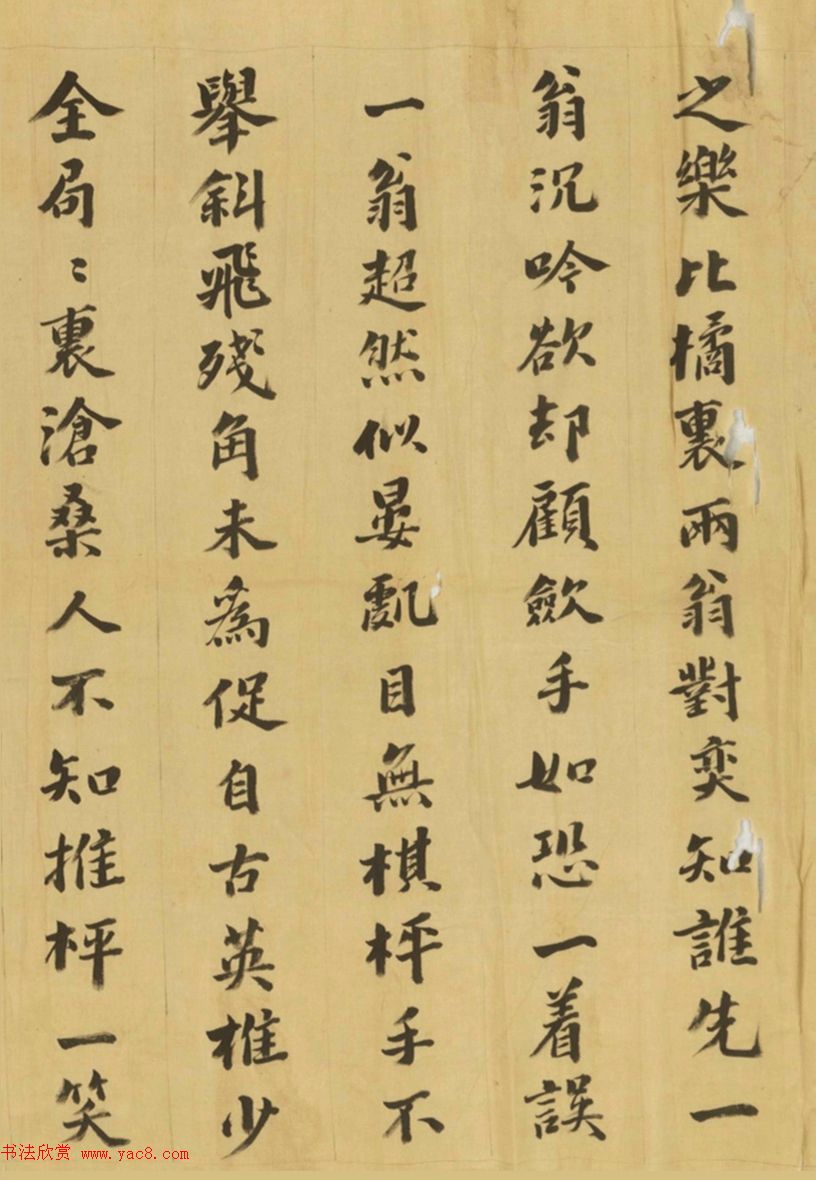 之樂比橘裏兩翁對奕知誰先一
翁沉吟欲却顧歛手如恐一着誤
一翁超然似晏目無棋枰手不
舉斜飛殘角未為促自古英雄少
全局〻裏滄桑人不知推枰一笑
书法欣赏 www.yac8.com